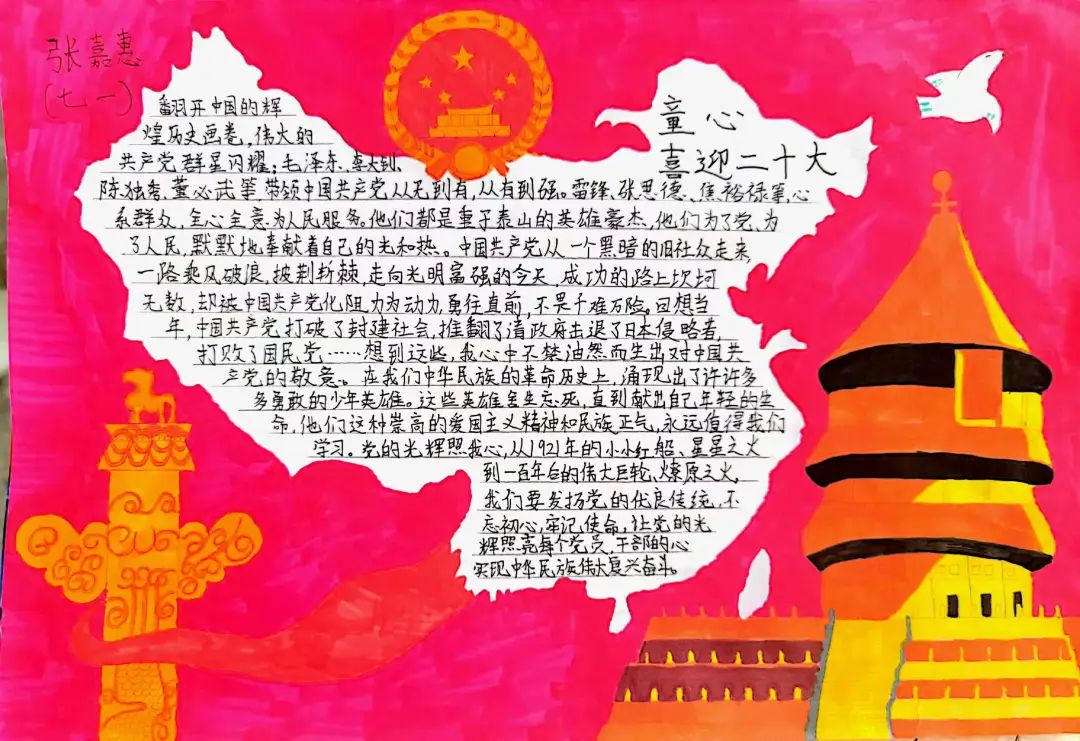 张嘉惠
(七一)
童心
喜迎二十大
翻开中国的辉
煌历史画卷,伟大的
共产党群星闪耀;毛泽东、李大钊、
陈独秀、董必武等带领中国共产党从无到有,从有到强。雷锋、张思德、焦裕禄等,心
系群众,全心全意为人民服务。他们都是重于泰山的英雄豪杰,他们为了党、为
了人民,默默地奉献着自己的光和热。中国共产党从一个黑暗的旧社会走来,
一路乘风破浪,披荆斩棘,走向光明富强的今天,成功的路上坎坷
无数,却被中国共产党化阻力为动力,勇往直前,不畏千难万险。回想当
年,中国共产党打破了封建社会,推翻了清政府击退了日本侵略者,
打败了国民党……想到这些,我心中不禁油然而生出对中国共
产党的敬意。在我们中华民族的革命历史上,涌现出了许许多
多勇敢的少年英雄。这些英雄舍生忘死,直到献出自己年轻的生
命,他们这种崇高的爱国主义精神和民族正气,永远值得我们
学习。党的光辉照我心,从1921年的小小红船、星星之火
到一百年后的伟大巨轮、燎原之火,
我们要发扬党的优良传统,不
忘初心,牢记使命,让党的光
辉照亮每个党员,干部的心
实现中华民族伟大复兴奋斗。